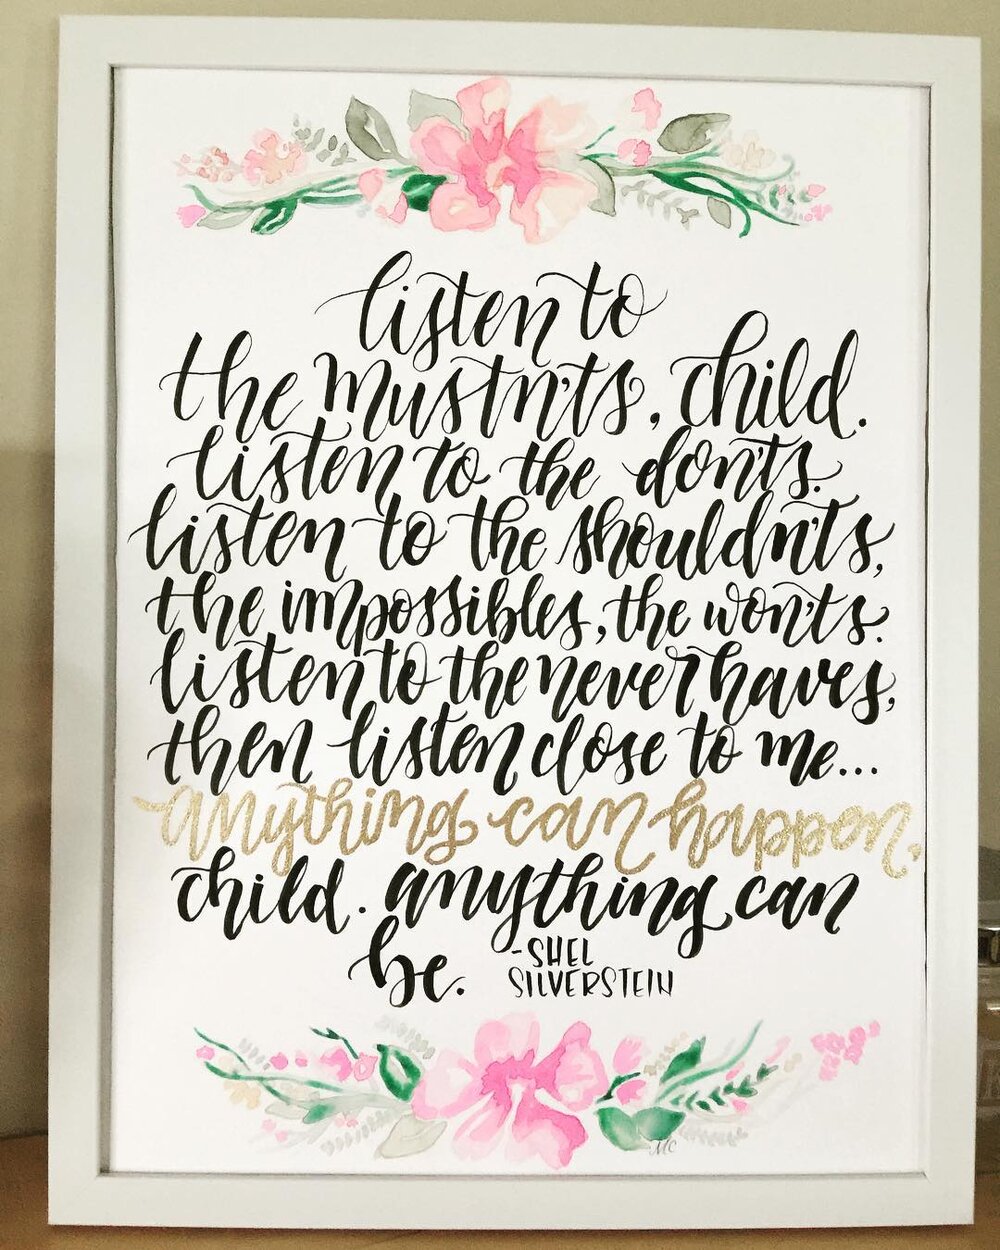 listen to
the mustn'ts, child.
listen to the don'ts.
listen to the shouldn'ts,
the impossibles, the won'ts.
listen to the never haves,
then listen close to me...
anything can happen,
child. anything can
be. -SHEL
SILVERSTEIN
MC